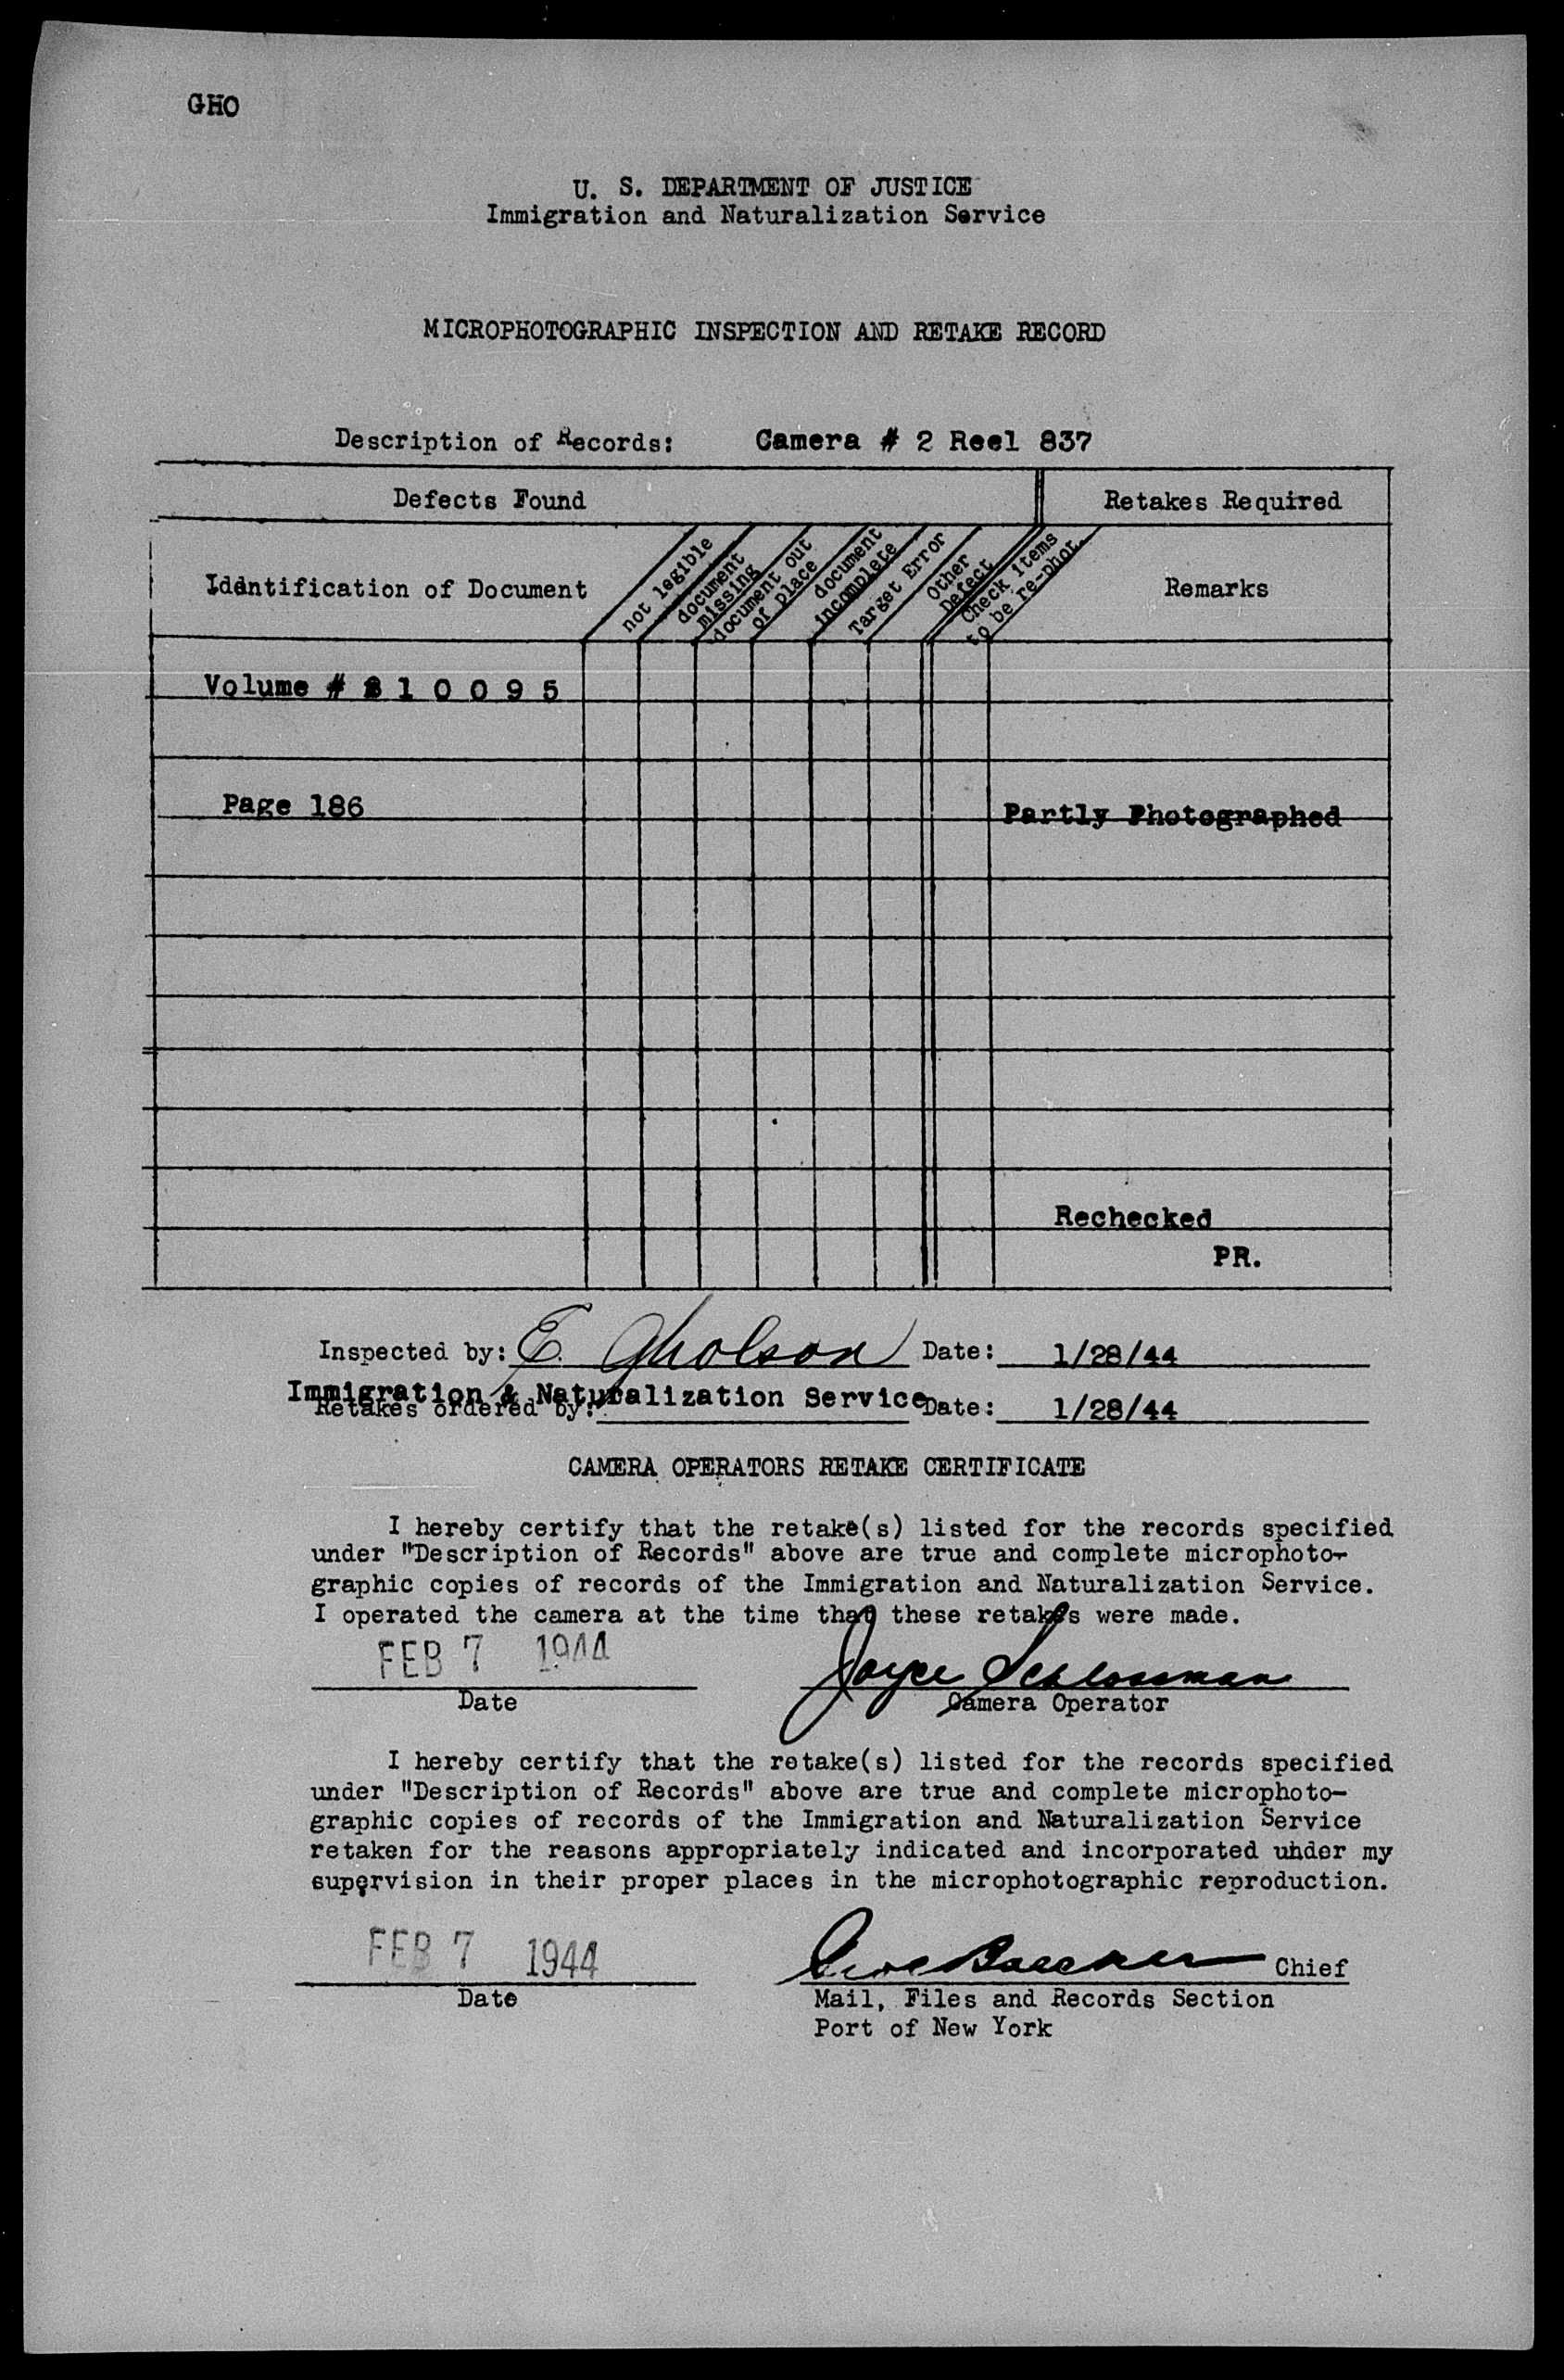 GHO
U. S. DEPARTMENT OF JUSTICE
Immigration and Naturalization Service
MICROPHOTOGRAPHIC INSPECTION AND RETAKE RECORD
Description of Records: Camera # 2 Reel 837
Defects Found
Retakes Required
Identification of Document
not legible
document
missing
document out
of place
document
incomplete
Target Error
Other
Defect
Check items
to be re-phot.
Remarks
Volume # 10095
Page 186
Partly Photographed
Rechecked
PR.
Inspected by: E. Gholson Date: 1/28/44
Immigration & Naturalization Service
Retakes ordered by: Date: 1/28/44
CAMERA OPERATORS RETAKE CERTIFICATE
I hereby certify that the retake(s) listed for the records specified
under "Description of Records" above are true and complete microphoto-
graphic copies of records of the Immigration and Naturalization Service.
I operated the camera at the time that these retakes were made.
FEB 7 1944
Joyce Schlossman
Date
Camera Operator
I hereby certify that the retake(s) listed for the records specified
under "Description of Records" above are true and complete microphoto-
graphic copies of records of the Immigration and Naturalization Service
retaken for the reasons appropriately indicated and incorporated under my
supervision in their proper places in the microphotographic reproduction.
FEB 7 1944
Chief
Date
Mail, Files and Records Section
Port of New York